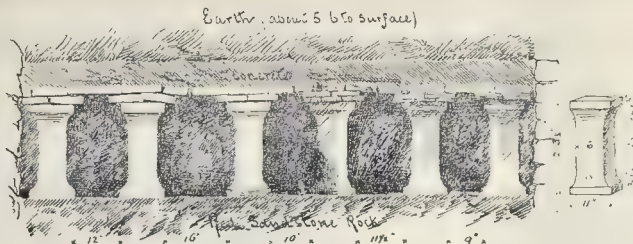 Earth, about 5 6 to surface)
Concrete
Red Sandstone Rock
12" 16" 10" 11½" 9"
11"